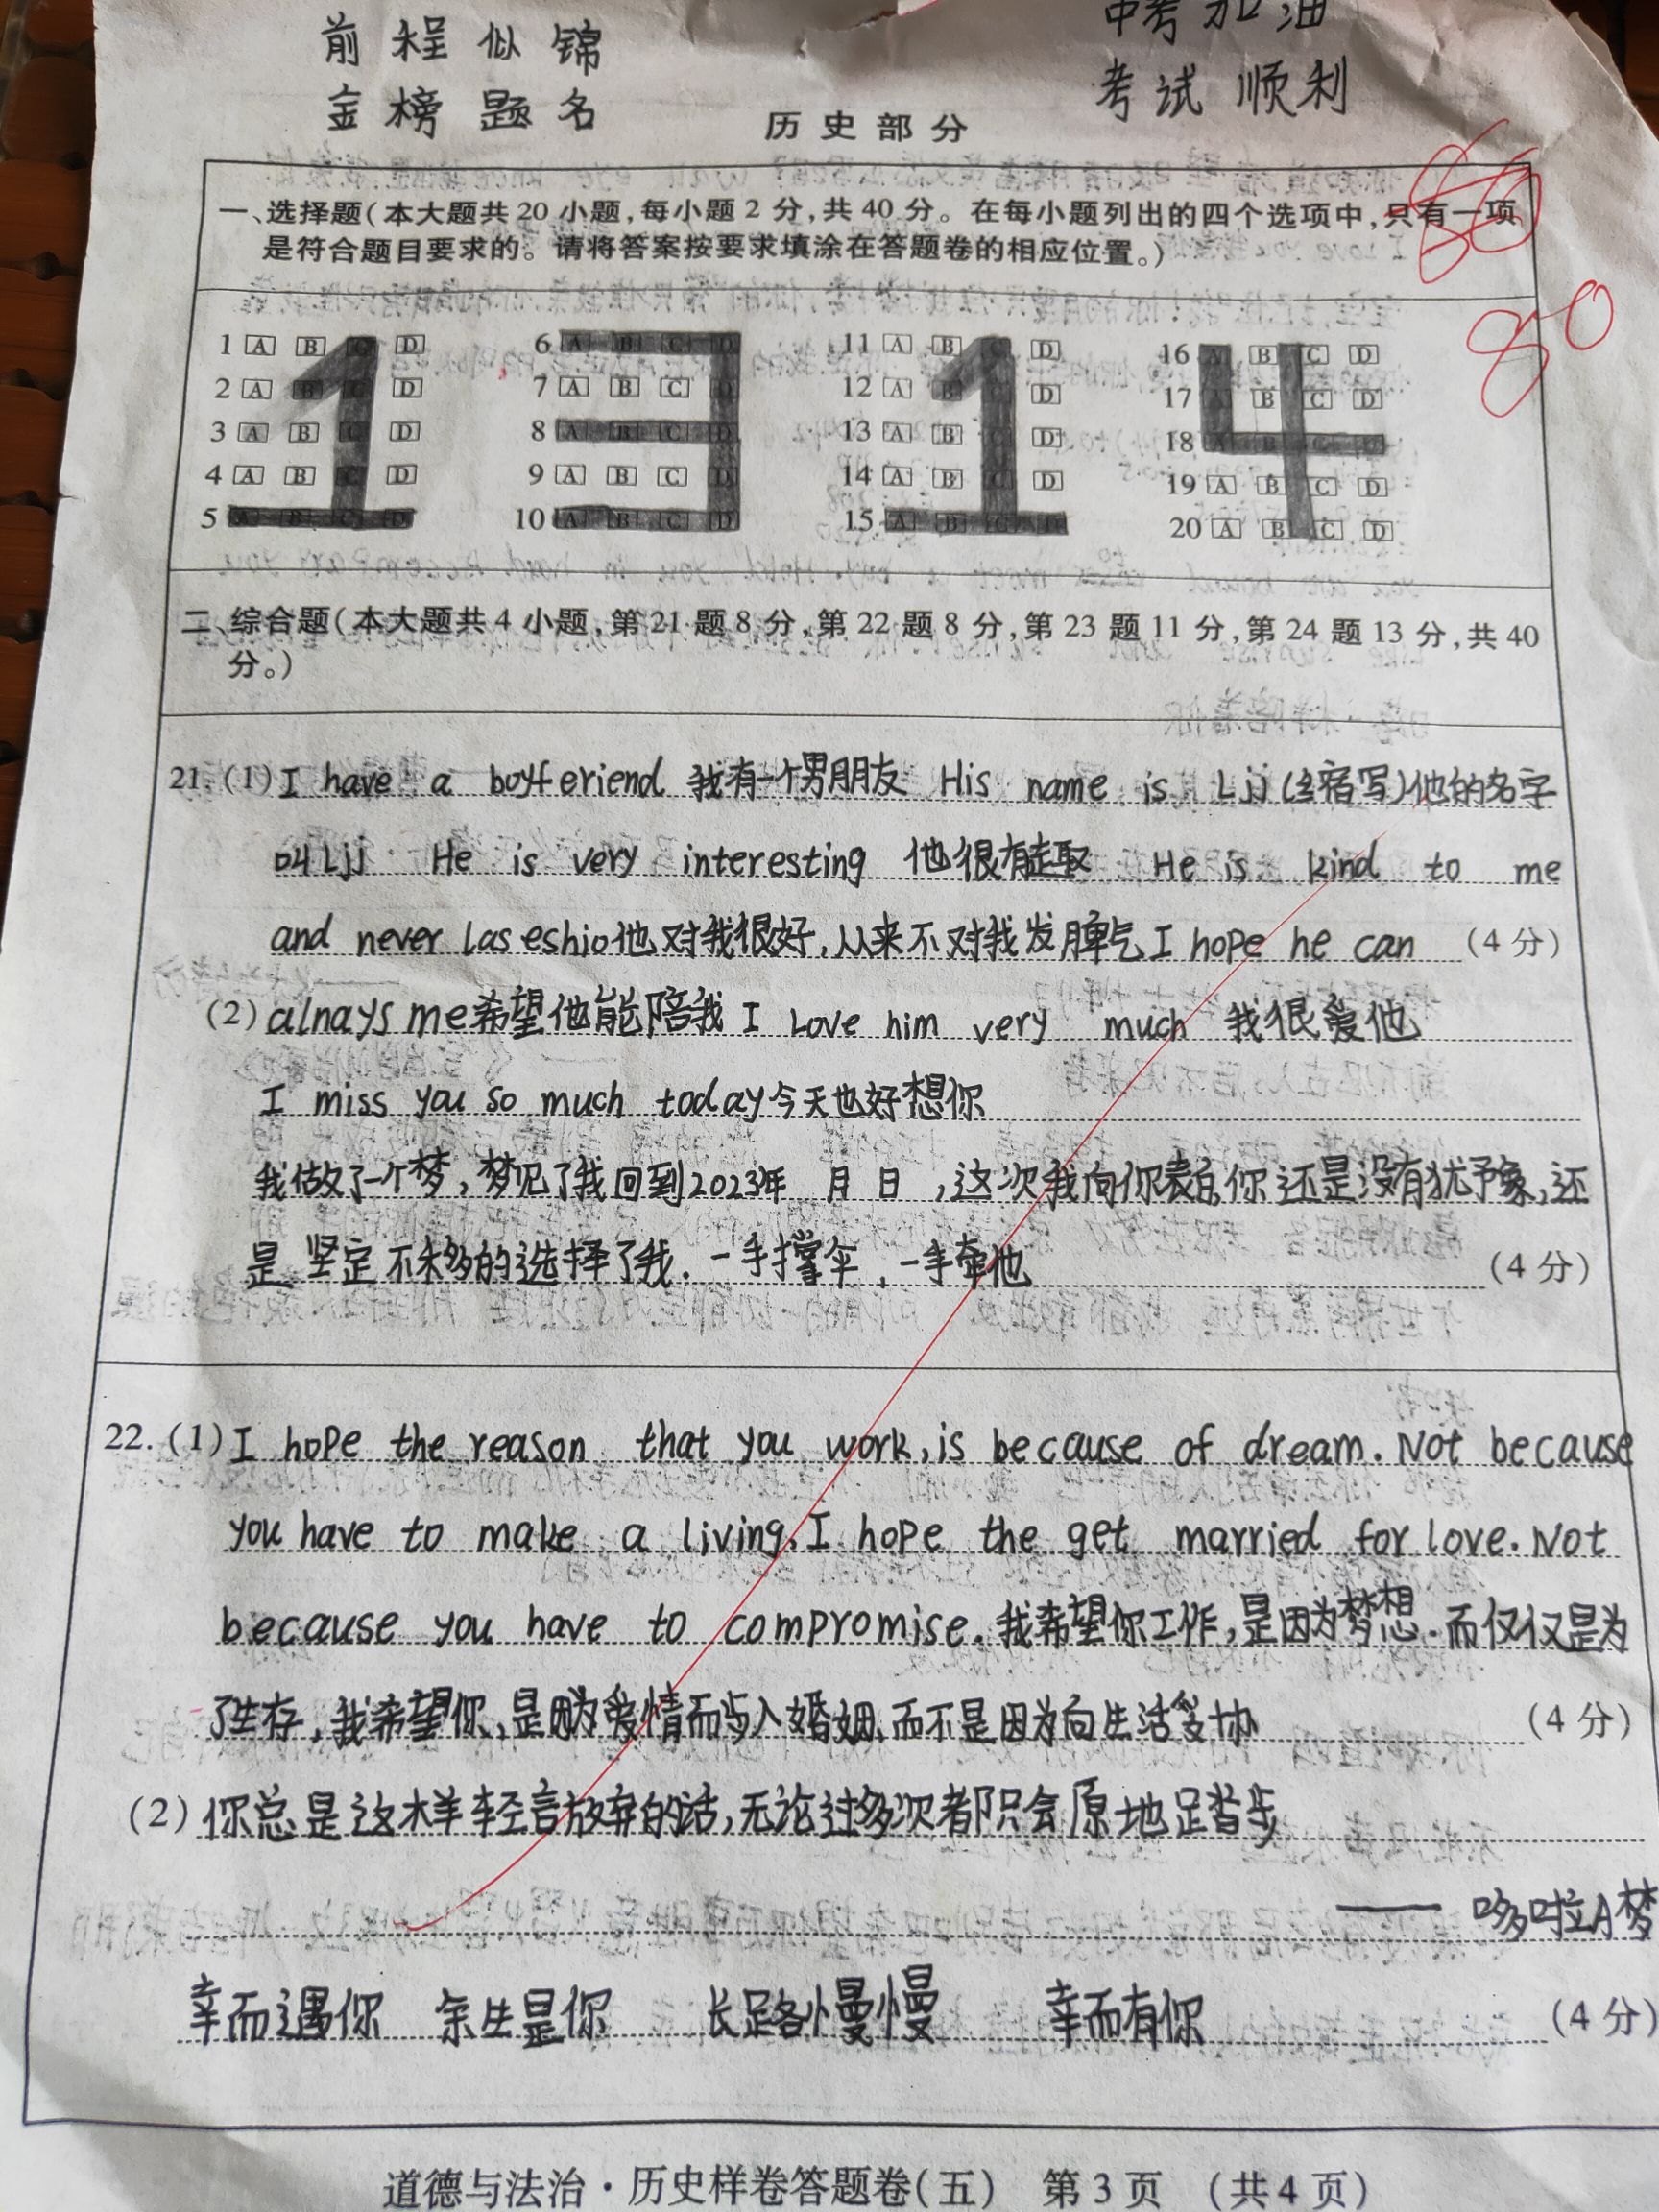 前程似锦
金榜题名
中考加油
考试顺利
历史部分
80
一、选择题(本大题共20小题,每小题2分,共40分。在每小题列出的四个选项中,只有一项
是符合题目要求的。请将答案按要求填涂在答题卷的相应位置。)
80
1 A B C D 6 A B C D 11 A B C D 16 A B C D
2 A B C D 7 A B C D 12 A B C D 17 A B C D
3 A B C D 8 A B C D 13 A B C D 18 A B C D
4 A B C D 9 A B C D 14 A B C D 19 A B C D
5 A B C D 10 A B C D 15 A B C D 20 A B C D
1 3 1 4
二、综合题(本大题共4小题,第21题8分,第22题8分,第23题11分,第24题13分,共40
分。)
21.(1)I have a boyferiend 我有一个男朋友 His name is Ljj(缩写)他的名字
叫Ljj He is very interesting 他很有趣 He is kind to me
and never las eshio他对我很好,从来不对我发脾气 I hope he can (4分)
(2)alnays me希望他能陪我 I Love him very much 我很爱他
I miss you so much today今天也好想你
我做了一个梦,梦见了我回到2023年 月 日 ,这次我向你表白,你还是没有犹予象,还
是坚定不移的选择了我.一手撑伞,一手牵他 (4分)
22.(1)I hope the reason that you work,is because of dream.Not because
you have to make a living,I hope the get married for love.Not
because you have to compromise.我希望你工作,是因为梦想.而仅仅是为
了生存,我希望你,是因为爱情而步入婚姻,而不是因为向生活妥协 (4分)
(2)你总是这样轻言放弃的话,无论过多次都只会原地踏步
—— 哆啦A梦
幸而遇你 余生是你 长路慢慢 幸而有你 (4分)
道德与法治·历史样卷答题卷(五) 第3页 (共4页)